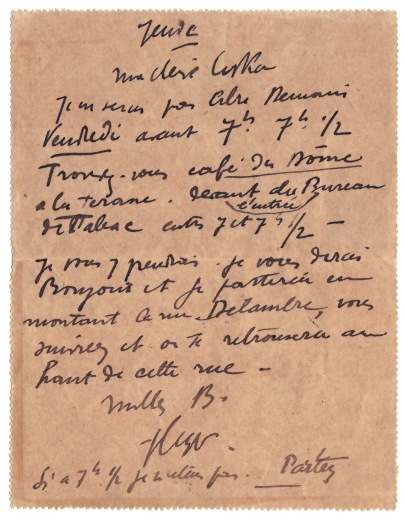 Jeudi
ma chère
Je ne serai pas libre Demain
Vendredi avant 7h. 7h. 1/2
Trouvez-vous café du Dôme
a la terrasse. devant du Bureau
l'entrée
de Tabac entre 7 et 7h 1/2 —
Je vous y prendrai. je vous dirai
Bonjour et je partirai en
montant la rue Delambre, vous
suivrez et on se retrouvera au
haut de cette rue —
mille B.
Si a 7h. 1/2 je n'etais pas. Partez